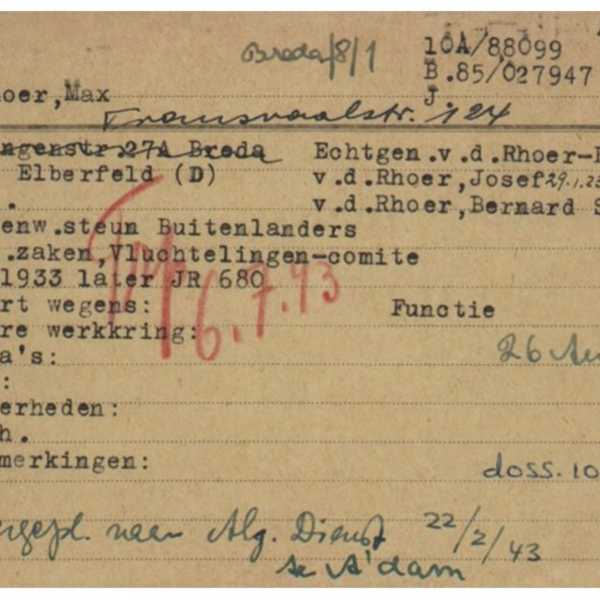 Breda/8/1
10A/88099
B.85/027947
J
hoer,Max
Transvaalstr. 124
ngenstr.27A Breda Echtgen.v.d.Rhoer-
Elberfeld (D) v.d.Rhoer,Josef 29.1.23
. v.d.Rhoer,Bernard S
enw.steun Buitenlanders
.zaken,Vluchtelingen-comite
1933 later JR 680
6.7.43
rt wegens: Functie
re werkkring:
a's: 26 Au
:
erheden:
h.
merkingen: doss. 10
rgepl. naar Alg. Dienst 22/2/43
te A'dam